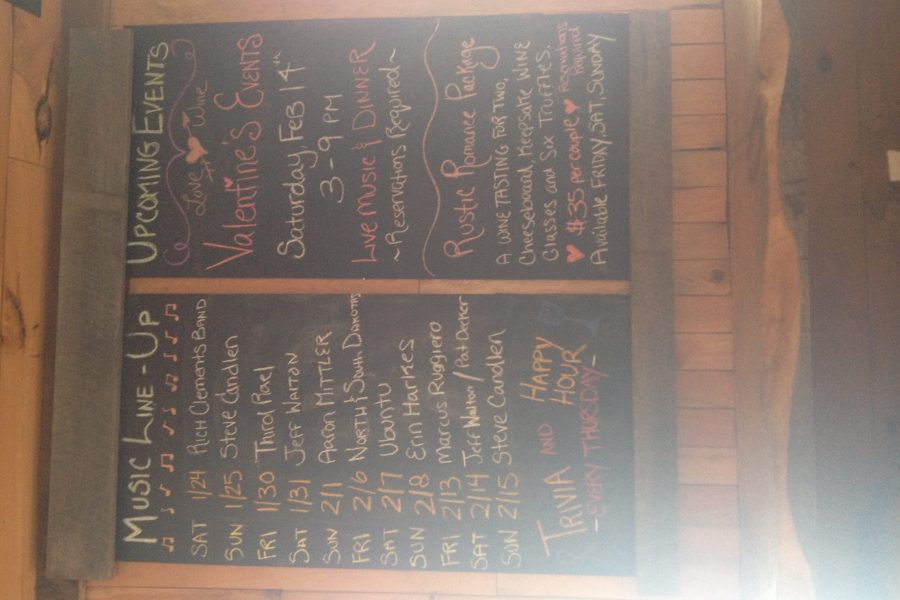 MUSIC LINE-UP
SAT 1/24 RICH CLEMENTS BAND
SUN 1/25 Steve Candlen
FRI 1/30 Third Rael
SAT 1/31 JEFF WALTON
SUN 2/1 Aaron MITTLER
FRI 2/6 NORTH & SOUTH DAKOTAS
SAT 2/7 Ubuntu
SUN 2/8 Erin Harkes
FRI 2/13 Marcus Ruggiero
SAT 2/14 Jeff Walton / Pat Decker
SUN 2/15 Steve Candlen
TRIVIA AND HAPPY HOUR
-EVERY THURSDAY-
UPCOMING EVENTS
Love Wine
Valentine's EVENTS
SATURDAY, FEB 14th
3-9 PM
LIVE MUSIC & DINNER
~Reservations Required~
RUSTIC ROMANCE Package
A WINE TASTING FOR TWO,
Cheeseboard, Keepsake WINE
Glasses and Six Truffles.
$35 per couple Reservations Required
AVAILABLE FRIDAY, SAT, SUNDAY